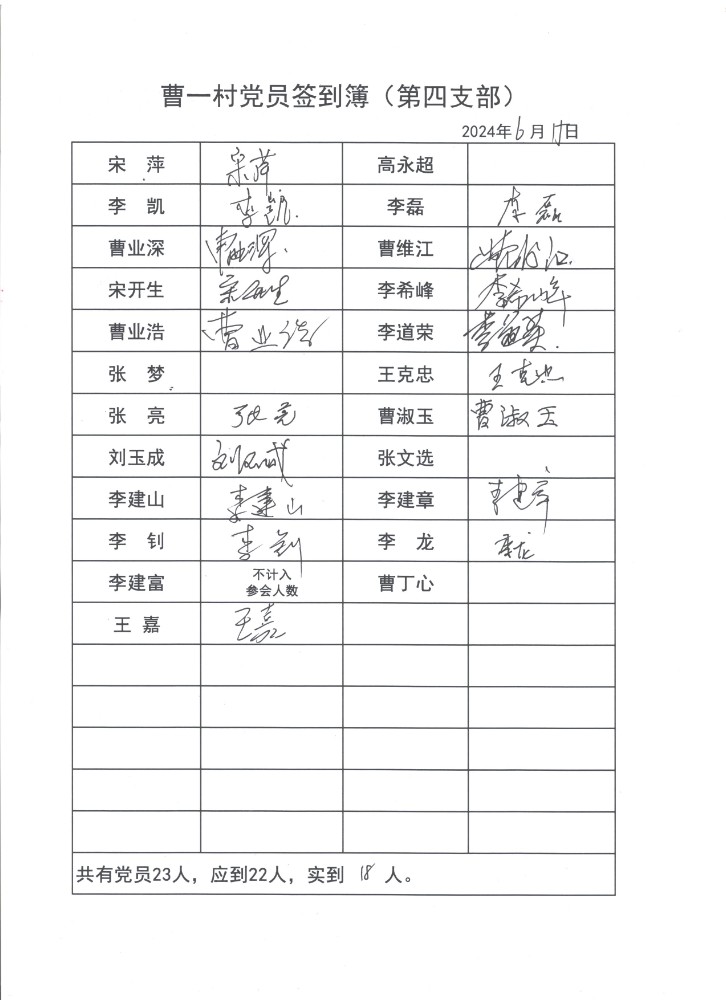 曹一村党员签到簿（第四支部）
2024年6月17日
宋 萍 宋萍 高永超
李 凯 李凯 李磊 李磊
曹业深 曹业深 曹维江 曹维江
宋开生 宋开生 李希峰 李希峰
曹业浩 曹业浩 李道荣 李道荣
张 梦 王克忠 王克忠
张 亮 张亮 曹淑玉 曹淑玉
刘玉成 刘玉成 张文选
李建山 李建山 李建章 李建章
李 钊 李钊 李 龙 李龙
李建富 不计入 曹丁心
参会人数
王 嘉 王嘉
共有党员23人，应到22人，实到 18 人。